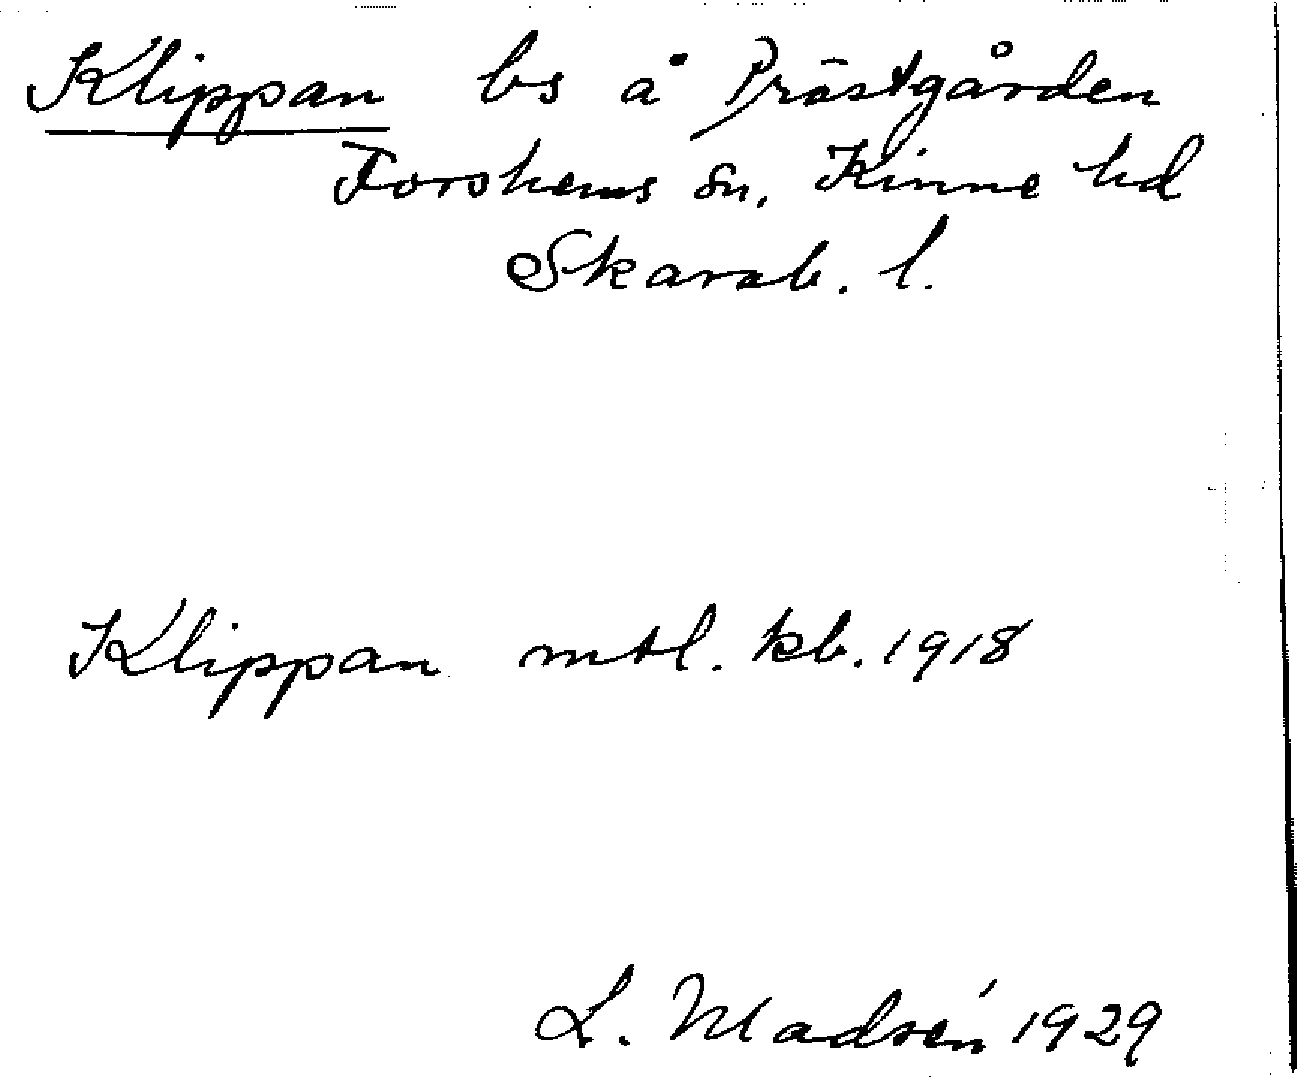 Klippan bs å Prästgården
Forshems sn. Kinne hd
Skarab. l.
Klippan mtl. kb. 1918
L. Madsén 1929